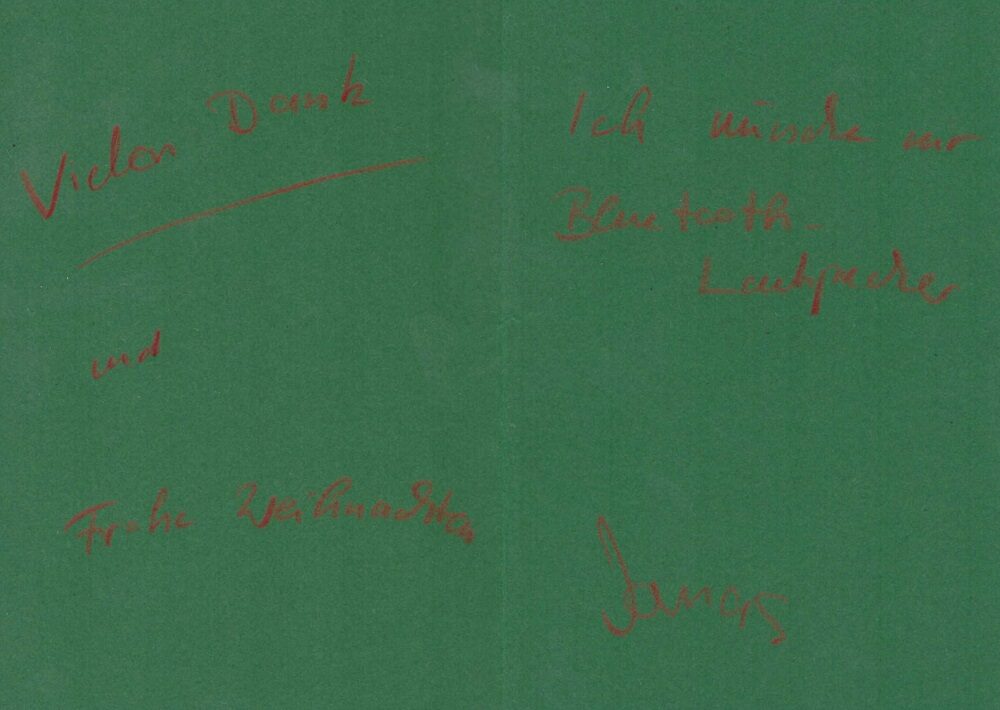 Vielen Dank
und
Frohe Weihnachten
Ich wünsche mir
Bluetooth-
Lautsprecher